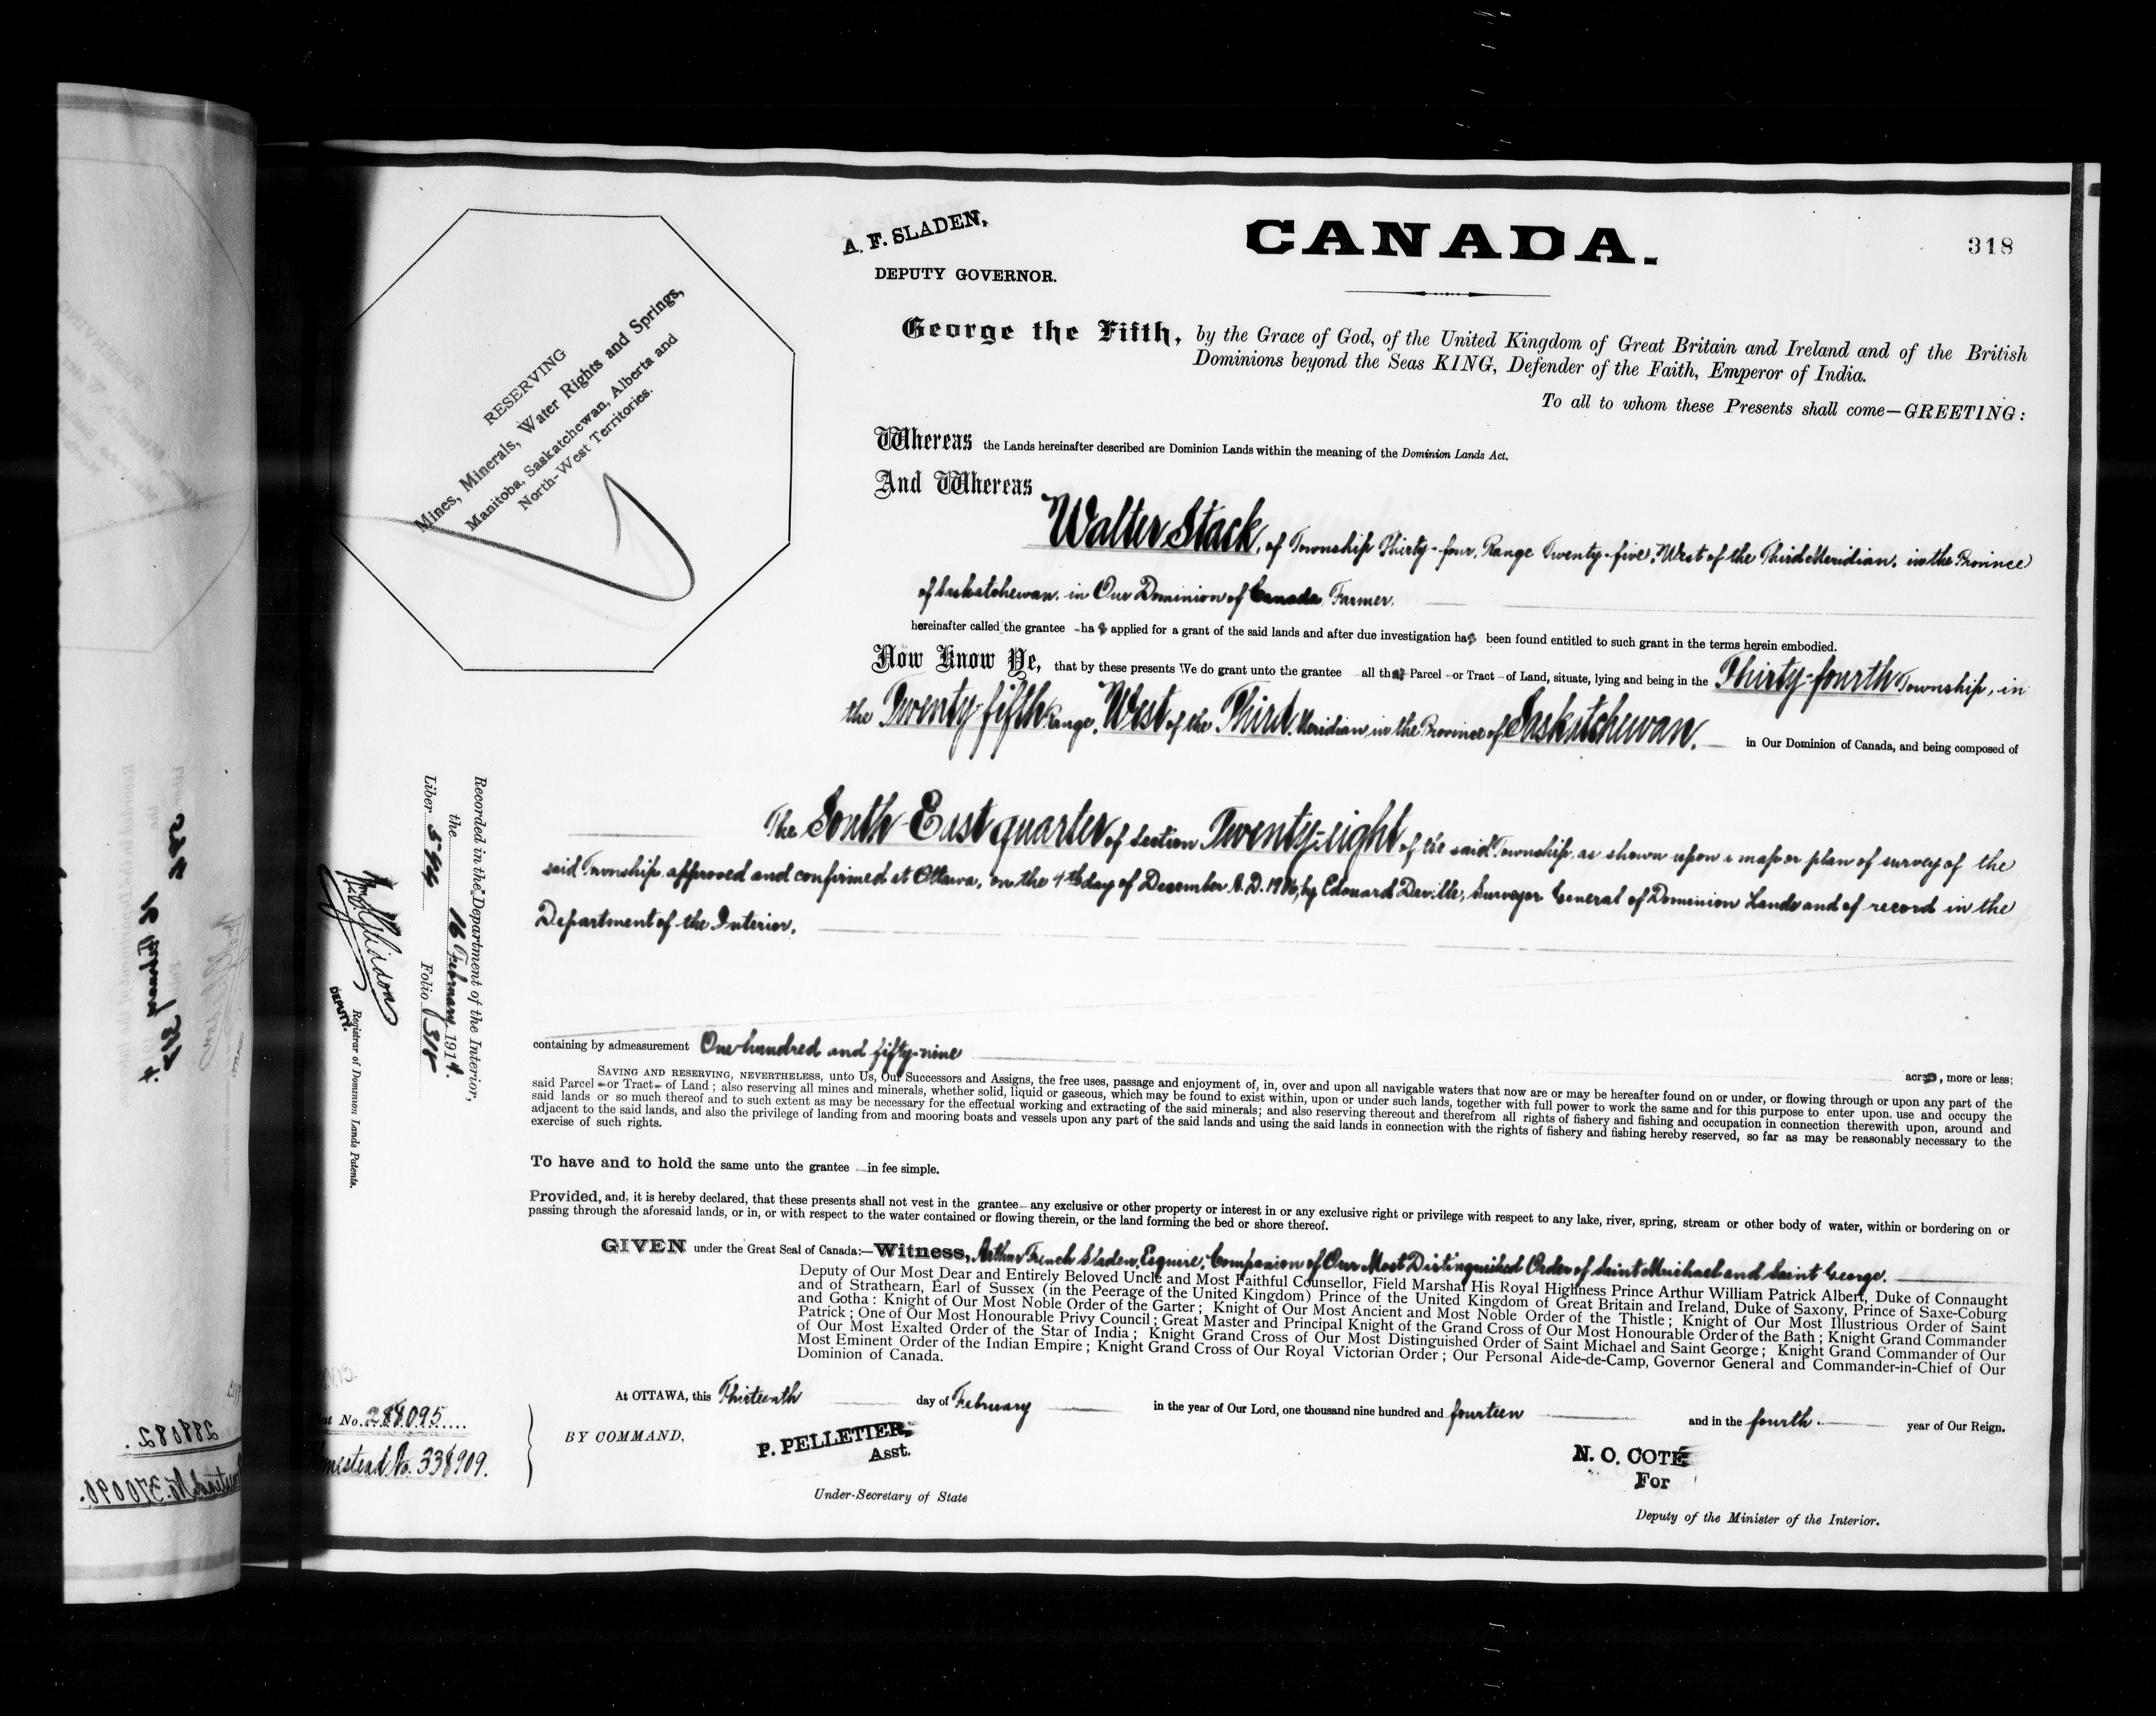 A. F. SLADEN,
DEPUTY GOVERNOR.
CANADA.
318
George the Fifth, by the Grace of God, of the United Kingdom of Great Britain and Ireland and of the British
Dominions beyond the Seas KING, Defender of the Faith, Emperor of India.
To all to whom these Presents shall come—GREETING:
RESERVING
Mines, Minerals, Water Rights and Springs,
Manitoba, Saskatchewan, Alberta and
North-West Territories.
Whereas the Lands hereinafter described are Dominion Lands within the meaning of the Dominion Lands Act.
And Whereas
Walter Stack, of Township Thirty-four, Range Twenty-five, West of the Third Meridian, in the Province
of Saskatchewan, in Our Dominion of Canada, Farmer.
hereinafter called the grantee has applied for a grant of the said lands and after due investigation has been found entitled to such grant in the terms herein embodied.
Now Know Ye, that by these presents We do grant unto the grantee all that Parcel or Tract of Land, situate, lying and being in the Thirty-fourth Township, in
the Twenty-fifth Range, West of the Third Meridian, in the Province of Saskatchewan. in Our Dominion of Canada, and being composed of
The South East quarter of Section Twenty-eight of the said Township, as shown upon a map or plan of survey of the
said Township, approved and confirmed at Ottawa, on the 4th day of December A.D. 1906, by Edouard Deville, Surveyor General of Dominion Lands and of record in the
Department of the Interior.
containing by admeasurement One hundred and fifty-nine
acres, more or less;
SAVING AND RESERVING, NEVERTHELESS, unto Us, Our Successors and Assigns, the free uses, passage and enjoyment of, in, over and upon all navigable waters that now are or may be hereafter found on or under, or flowing through or upon any part of the
said Parcel or Tract of Land; also reserving all mines and minerals, whether solid, liquid or gaseous, which may be found to exist within, upon or under such lands, together with full power to work the same and for this purpose to enter upon, use and occupy the
said lands or so much thereof and to such extent as may be necessary for the effectual working and extracting of the said minerals; and also reserving thereout and therefrom all rights of fishery and fishing and occupation in connection therewith upon, around and
adjacent to the said lands, and also the privilege of landing from and mooring boats and vessels upon any part of the said lands and using the said lands in connection with the rights of fishery and fishing hereby reserved, so far as may be reasonably necessary to the
exercise of such rights.
To have and to hold the same unto the grantee in fee simple.
Provided, and, it is hereby declared, that these presents shall not vest in the grantee any exclusive or other property or interest in or any exclusive right or privilege with respect to any lake, river, spring, stream or other body of water, within or bordering on or
passing through the aforesaid lands, or in, or with respect to the water contained or flowing therein, or the land forming the bed or shore thereof.
GIVEN under the Great Seal of Canada:—Witness, Arthur French Sladen, Esquire, Companion of Our Most Distinguished Order of Saint Michael and Saint George.
Deputy of Our Most Dear and Entirely Beloved Uncle and Most Faithful Counsellor, Field Marshal His Royal Highness Prince Arthur William Patrick Albert, Duke of Connaught
and of Strathearn, Earl of Sussex (in the Peerage of the United Kingdom) Prince of the United Kingdom of Great Britain and Ireland, Duke of Saxony, Prince of Saxe-Coburg
and Gotha: Knight of Our Most Noble Order of the Garter; Knight of Our Most Ancient and Most Noble Order of the Thistle; Knight of Our Most Illustrious Order of Saint
Patrick; One of Our Most Honourable Privy Council; Great Master and Principal Knight of the Grand Cross of Our Most Honourable Order of the Bath; Knight Grand Commander
of Our Most Exalted Order of the Star of India; Knight Grand Cross of Our Most Distinguished Order of Saint Michael and Saint George; Knight Grand Commander of Our
Most Eminent Order of the Indian Empire; Knight Grand Cross of Our Royal Victorian Order; Our Personal Aide-de-Camp, Governor General and Commander-in-Chief of Our
Dominion of Canada.
At OTTAWA, this Thirteenth day of February in the year of Our Lord, one thousand nine hundred and fourteen and in the fourth year of Our Reign.
BY COMMAND,
P. PELLETIER,
Asst.
Under-Secretary of State
N. O. COTÉ
For
Deputy of the Minister of the Interior.
Recorded in the Department of the Interior,
the 16 February 1914.
Liber 544 Folio 318
DEPUTY. Registrar of Dominion Lands Patents.
No. 288095
No. 338909.
288082.
No. 370090.